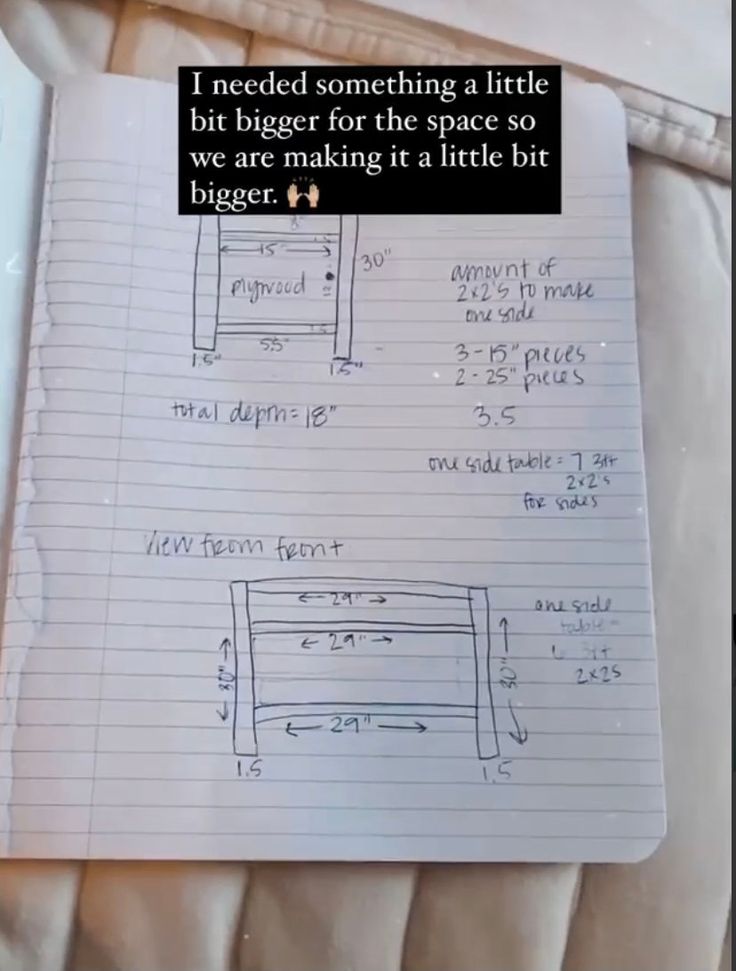 I needed something a little
bit bigger for the space so
we are making it a little bit
bigger. 🙌🏻
8"
15"
1.5
30"
plywood
1.5
5.5"
1.5"
1.5"
total depth = 18"
amount of
2x2's to make
one side
3-15" pieces
2-25" pieces
3.5
one side table = 7 3ft
2x2's
for sides
View from front
29"
29"
30"
30"
29"
1.5
1.5
one side
table =
6 3ft
2x2s